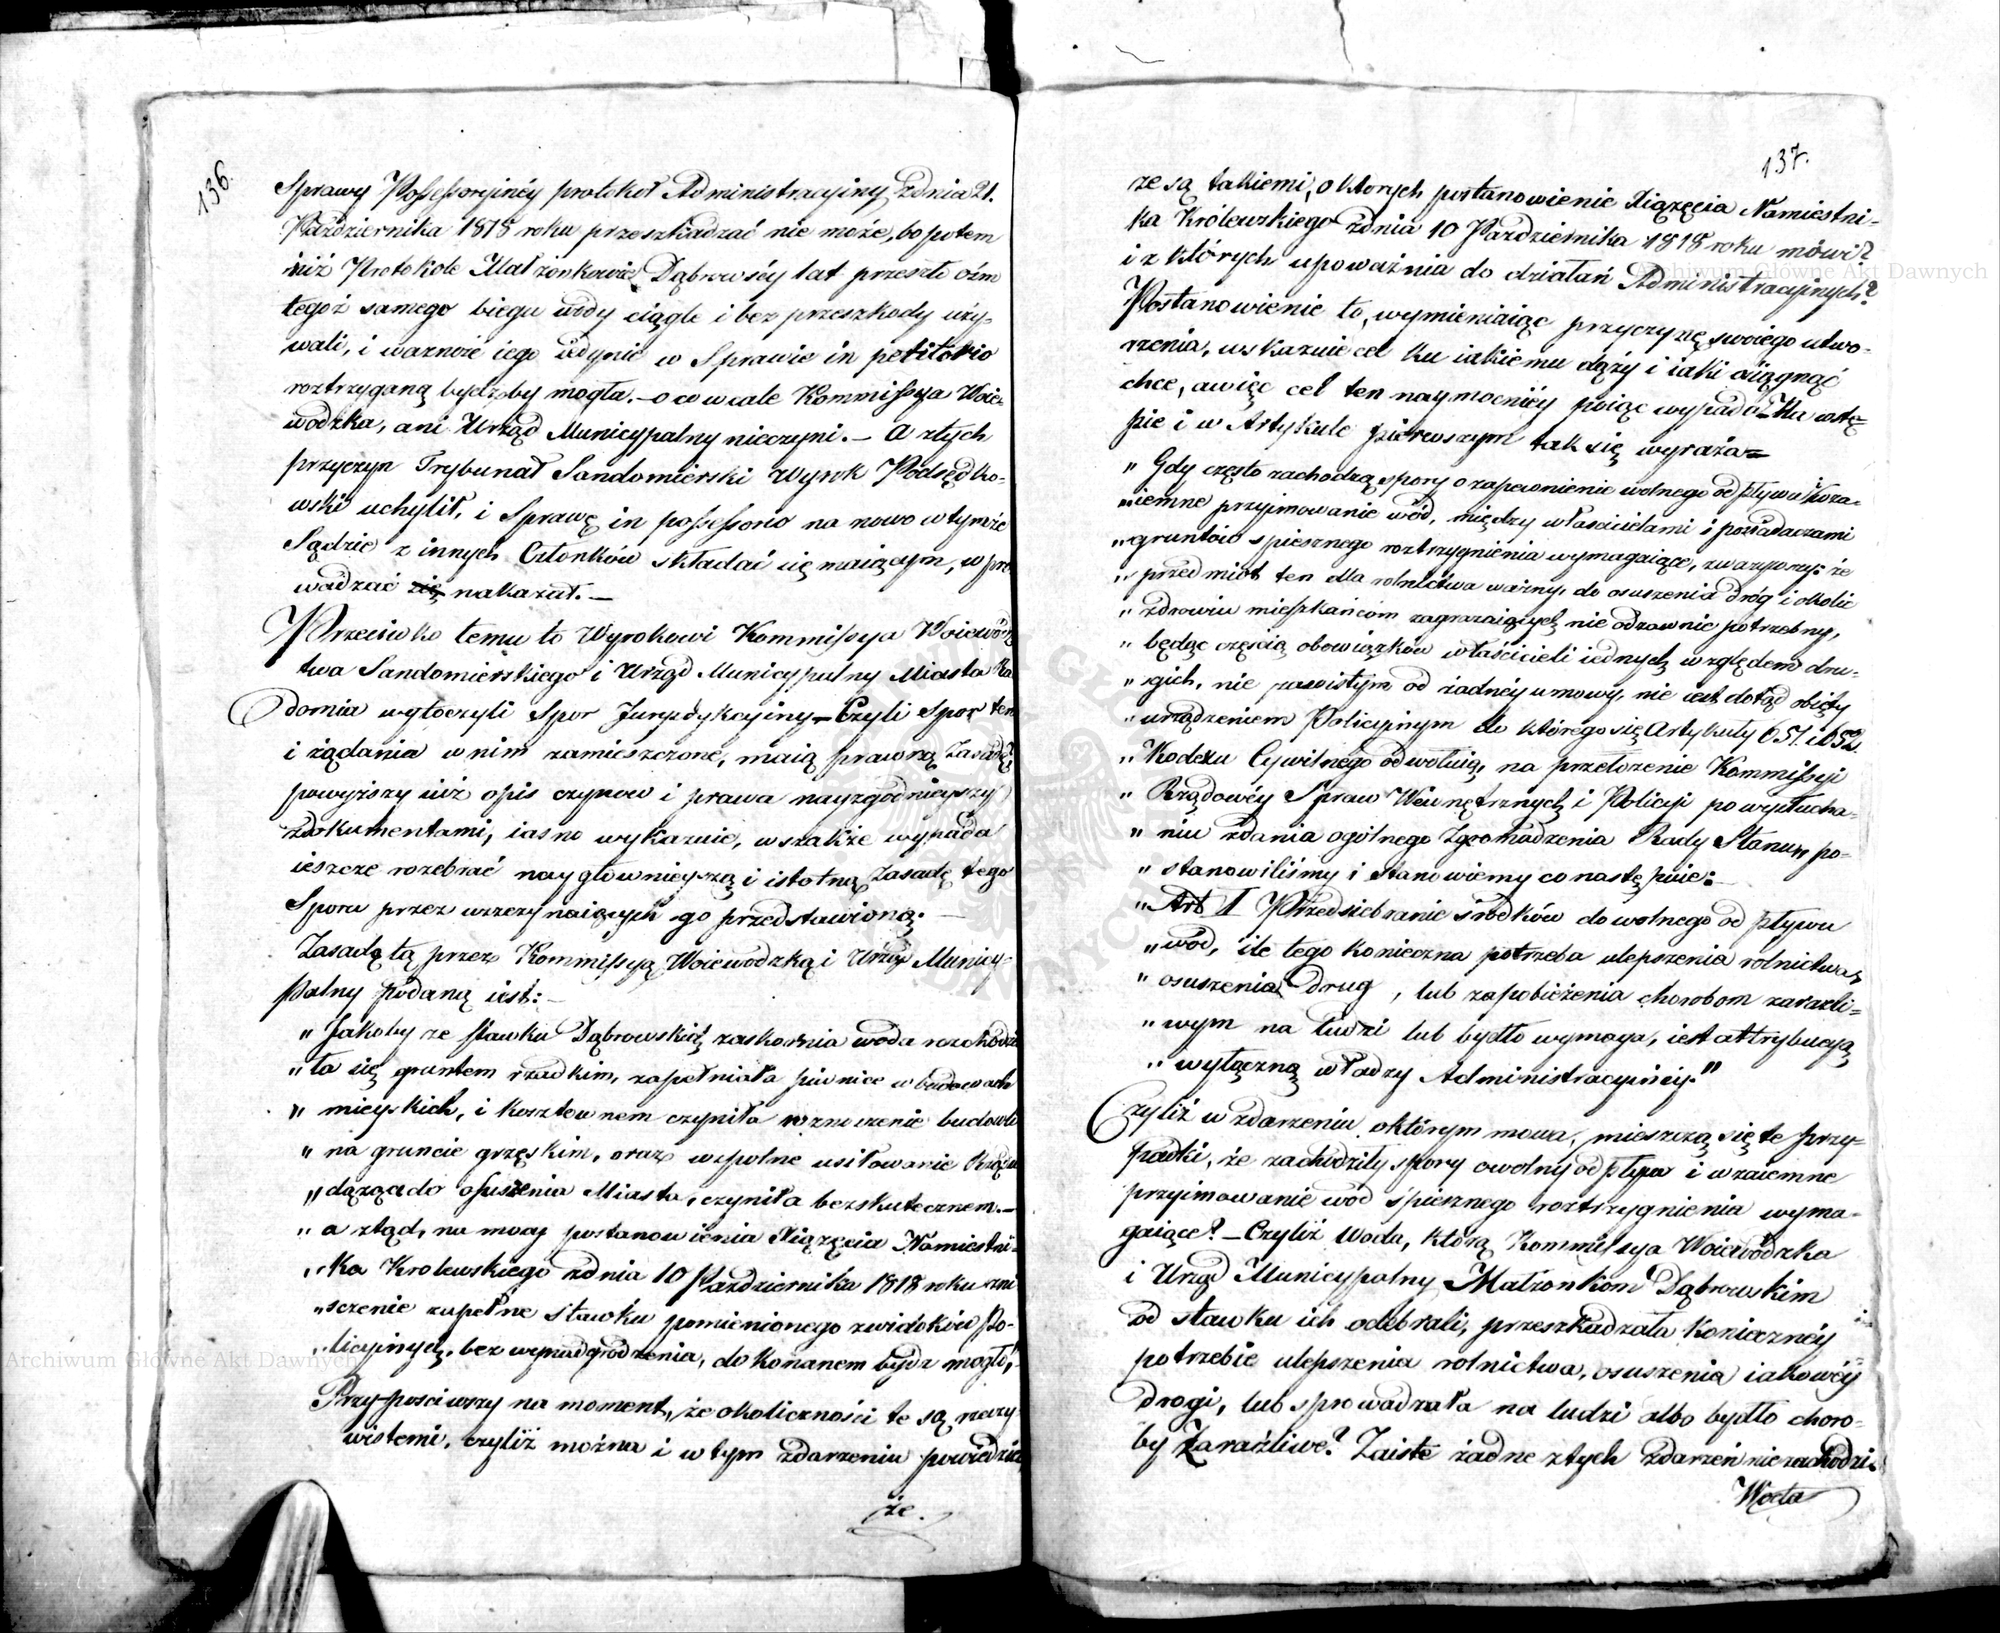 136.
Sprawy Possessoryinéy protokoł Administracyiny z dnia 21.
Października 1818 roku przeszkadzać nie może, bo potem
iuż Protokole Małżonkowie Dąbrowscy lat przeszło ośm
tegoż samego biegu wody ciągle i bez przeszkody uży-
wali, i ważność iego iedynie w Sprawie in petitorio
roztrzyganą bydźby mogła, – o co wcale Kommissya Woie-
wódzka, ani Urząd Municypalny nieczyni. – A z tych
przyczyn Trybunał Sandomierski Wyrok Podsędko-
wski uchylił, i Sprawę in possessorio na nowo w tymże
Sądzie z innych Członków składać się maiącym, wpro-
wadzać nakazał. –
Przeciwko temu to Wyrokowi Kommissya Woiewódz-
twa Sandomierskiego i Urząd Municypalny Miasta Ra-
domia wytoczyli Spór Jurysdykcyiny – Czyli Spor ten
i żądania w nim zamieszczone, maią prawną Zasadę?
powyższy iuż opis czynów i prawa nayzgodnieyszy
z dokumentami, iasno wykazuie, wszakże wypada
ieszcze rozebrać naygłównieyszą i istotną Zasadę tego
Sporu przez wszczynaiących go przedstawioną. –
Zasadą tą przez Kommissyą Woiewódzką i Urząd Municy-
palny podaną iest: –
„ Jakoby ze stawku Dąbrowskich zaskórnia woda rozchodzi-
„ ła się gruntem rzadkim, zapełniała piwnice w budowach
„ mieyskich, i kosztownem czyniła wznoszenie budowli
„ na gruncie grzęskim, oraz wspólne usiłowanie Rządu
„ dążące do osuszenia Miasta, czyniła bezskutecznem. –
„ a ztąd, na mocy postanowienia Xiążęcia Namiestni-
„ ka Krolewskiego z dnia 10 Października 1818 roku zni-
„ szczenie zupełne stawku pomienionego z widoków Po-
„ licyinych, bez wynadgrodzenia, dokonanem bydź mogło,"
Przypuściwszy na moment, że okoliczności te są rzeczy-
wistemi, czyliż można i w tym zdarzeniu powiedzieć
że.
137.
że są takiemi, o ktorych postanowienie Xiążęcia Namiestni-
ka Królewskiego z dnia 10 Października 1818 roku mówi?
i z których upoważnia do działań Administracyinych?
Postanowienie to, wymieniaiąc przyczynę swoiego utwo-
rzenia, wskazuie cel ku iakiemu dąży i iaki osiągnąć
chce, a więc cel ten naymocniéy poiąc wypada. Na wstę-
pie i w Artykule pierwszym tak się wyraża =
„ Gdy często zachodzą spory o zapewnienie wolnego odpływu i wza-
„ iemne przyjmowanie wód, między właścicielami i posiadaczami
„ gruntów spiesznego roztrzygnienia wymagaiące, zważywszy: że
„ przedmiot ten dla rolnictwa ważny, do osuszenia dróg i okolic
„ zdrowiu mieszkańcom zagrażaiących nieodzownie potrzebny,
„ będąc częścią obowiązków właścicieli iednych względem dru-
„ gich, nie zawisłym od żadnéy umowy, nie iest dotąd obięty
„ urządzeniem Policyinym do którego się Artykuły 651 i 652
„ Kodexu Cywilnego odwołuią, na przełożenie Kommissyi
„ Rządowéy Spraw Wewnętrznych i Policyi po wysłucha-
„ niu zdania ogólnego Zgromadzenia Rady Stanu „ po-
„ stanowiliśmy i stanowiemy co następuie: –
„ Art I Przedsiebranie środków do wolnego odpływu
„ wód, ile tego konieczna potrzeba ulepszenia rolnictwa,
„ osuszenia drug, lub zapobieżenia chorobom zaraźli-
„ wym na ludzi lub bydło wymaga, iest attrybucyą
„ wyłączną władzy Administracyinéy."
Czyliż w zdarzeniu o którym mowa, mieszczą się te przy-
padki, że zachodziły spory o wolny odpływ i wzaiemne
przyimowanie wód spiesznego roztrzygnienia wyma-
gaiące? – Czyliż woda, którą Kommissya Woiewódzka
i Urząd Municypalny Małżonkom Dąbrowskim
od stawku ich odebrali, przeszkadzała koniecznéy
potrzebie ulepszenia rolnictwa, osuszenia iakowéy
drogi, lub sprowadzała na ludzi albo bydło choro-
by Zaraźliwe? Zaiste żadne z tych zdarzeń nie zachodzi.
Woda
Archiwum Główne Akt Dawnych
Archiwum Główne Akt Dawnych